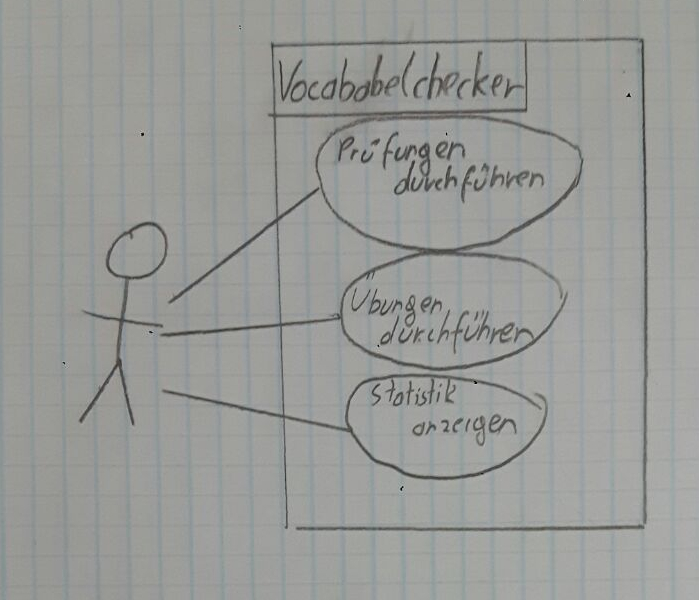 Vocabobelchecker
Prüfungen
durchführen
Übungen
durchführen
Statistik
anzeigen